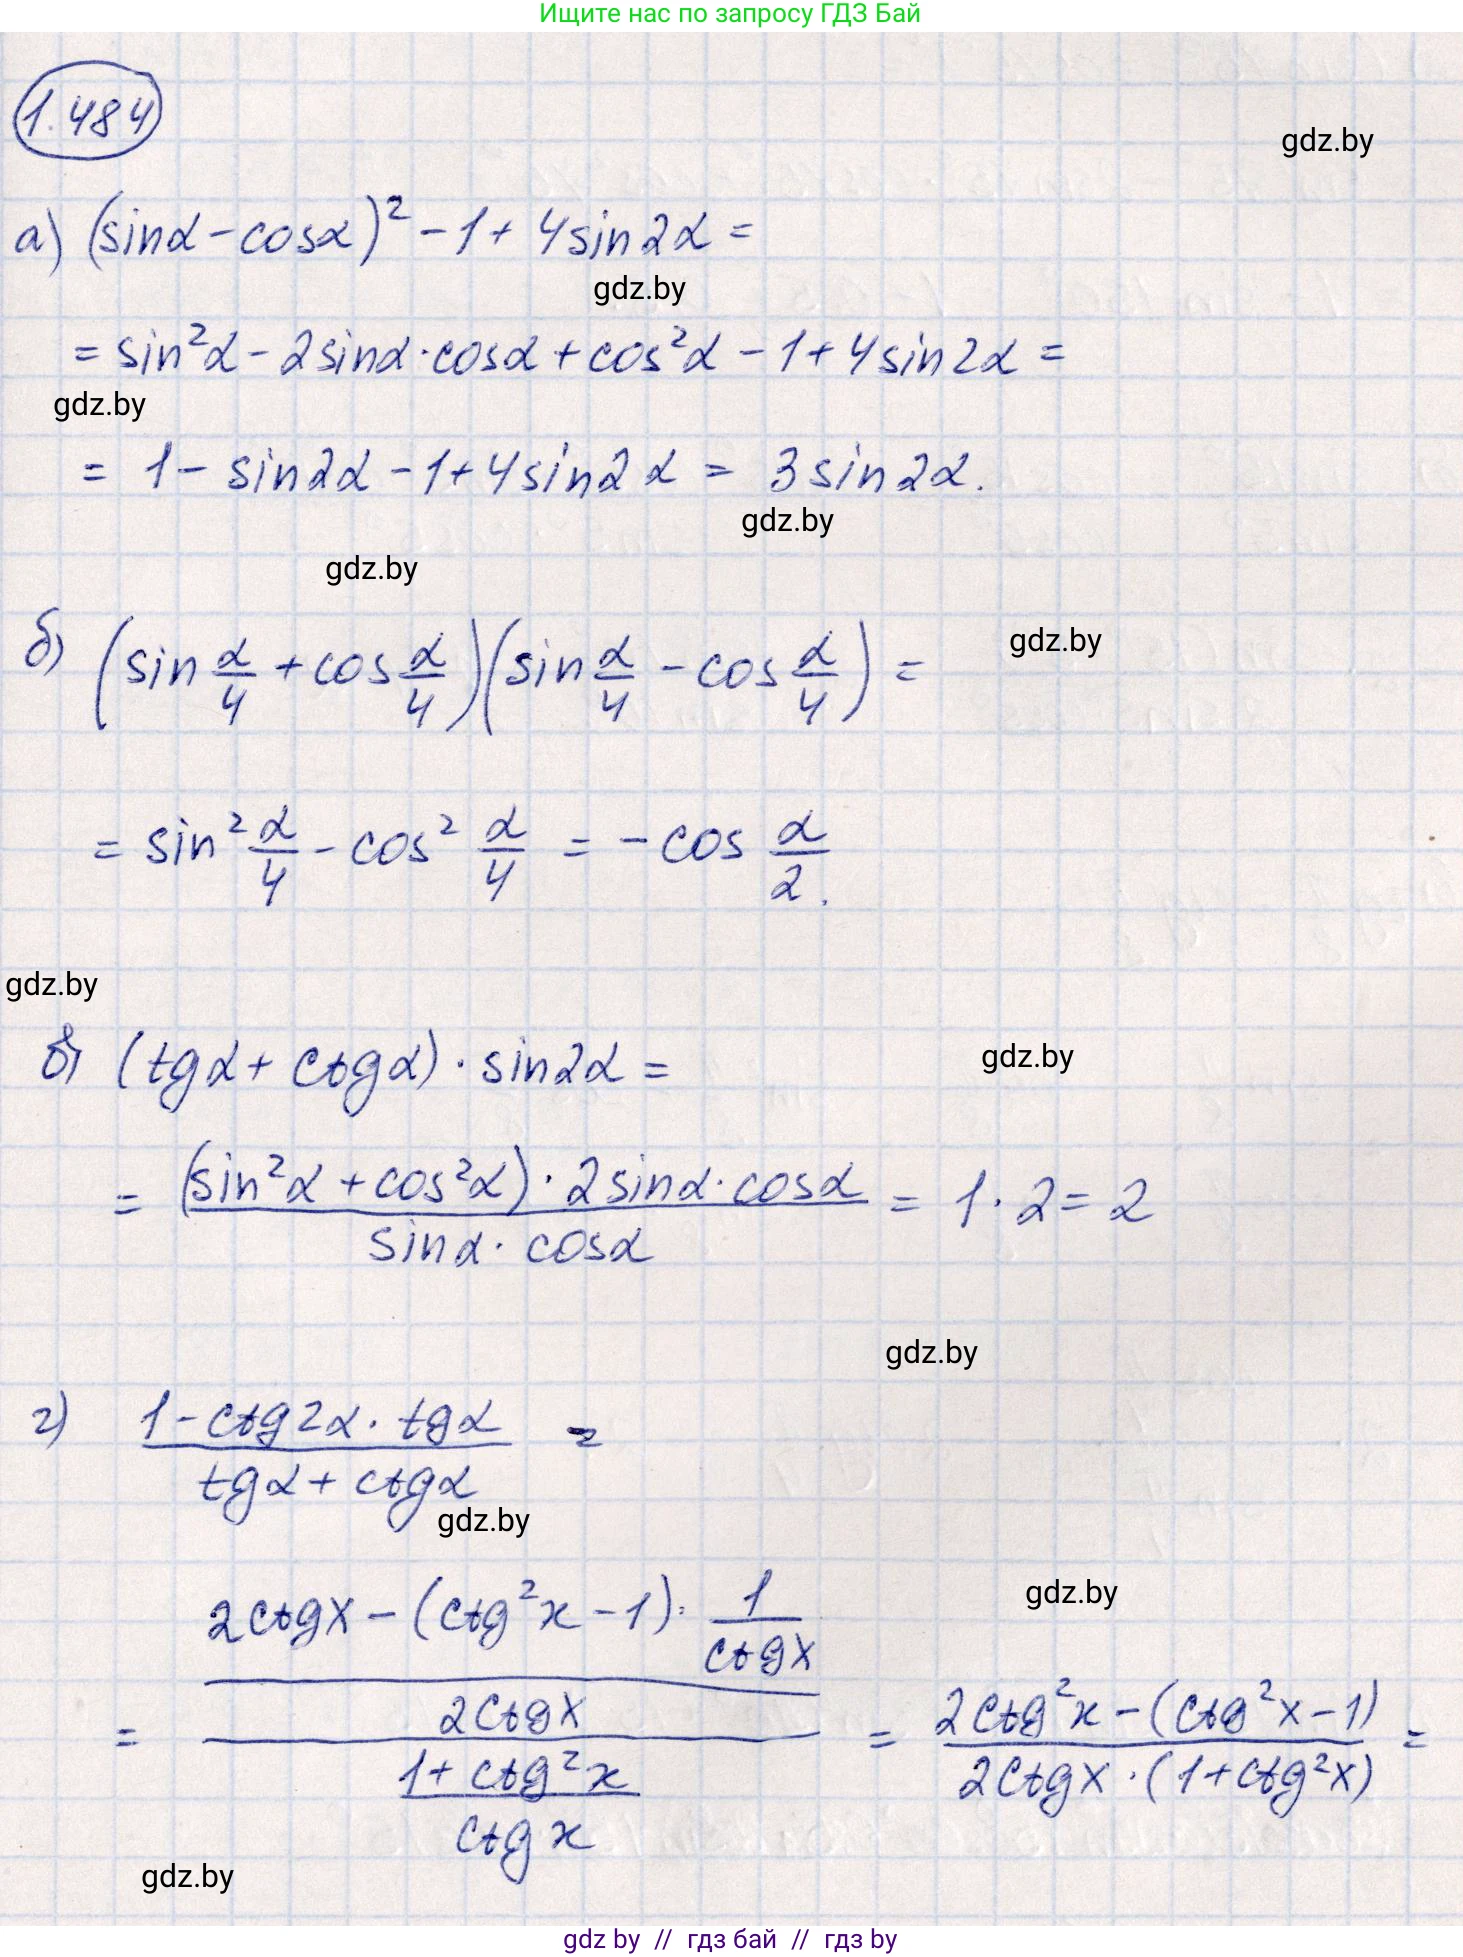 Ищите нас по запросу ГДЗ Бай
1.484
gdz.by
а) (sinα - cosα)² - 1 + 4sin2α =
gdz.by
= sin²α - 2sinα·cosα + cos²α - 1 + 4sin2α =
gdz.by
= 1 - sin2α - 1 + 4sin2α = 3sin2α.
gdz.by
gdz.by
б) (sin α/4 + cos α/4)(sin α/4 - cos α/4) =
gdz.by
= sin² α/4 - cos² α/4 = -cos α/2.
gdz.by
в) (tgα + ctgα)·sin2α =
gdz.by
= (sin²α + cos²α)·2sinα·cosα / sinα·cosα = 1·2 = 2
gdz.by
г) 1 - ctg2α·tgα / tgα + ctgα =
gdz.by
gdz.by
= 2ctgx - (ctg²x - 1)·1/ctgx / 2ctgx / 1 + ctg²x / ctgx = 2ctg²x - (ctg²x - 1) / 2ctgx·(1 + ctg²x) =
gdz.by
gdz by // гдз бай // гдз by